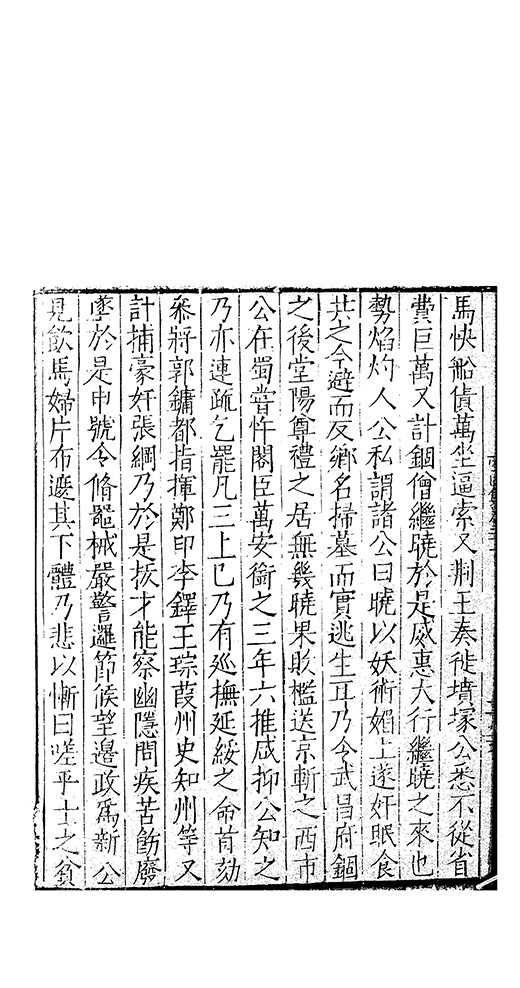 馬快船債萬坐逼索又荆王奏徙墳塚公悉不從省
費巨萬又計錮僧繼曉於是威惠大行繼曉之來也
勢焰灼人公私謂諸公曰曉以妖術媚上遂奸眠食
共之今避而反鄉名掃墓而實逃生耳乃令武昌府錮
之後堂陽尊禮之居無幾曉果敗檻送京斬之西市
公在蜀嘗忤閣臣萬安銜之三年六推咸抑公知之
乃亦連疏乞罷凡三上已乃有廵撫延綏之命首劾
叅將郭鏞都指揮鄭印李鐸王琮葭州史知州等又
計捕豪奸張綱乃於是拔才能察幽隱問疾苦飭廢
墜於是申號令脩噐械嚴警邏節候望邉政爲新公
見飲馬婦片布遮其下體乃悲以慚曰嗟乎士之貧